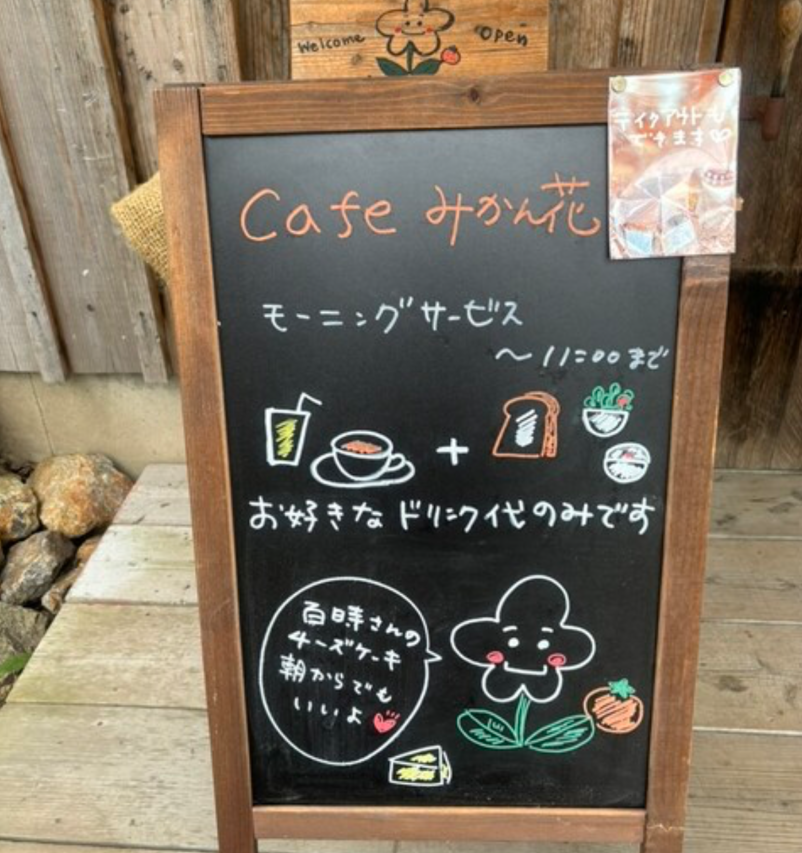 Welcome Open
テイクアウトも
できます♡
Cafe みかん花
モーニングサービス
～11:00まで
+
お好きなドリンク代のみです
百時さんの
チーズケーキ
朝からでも
いいよ